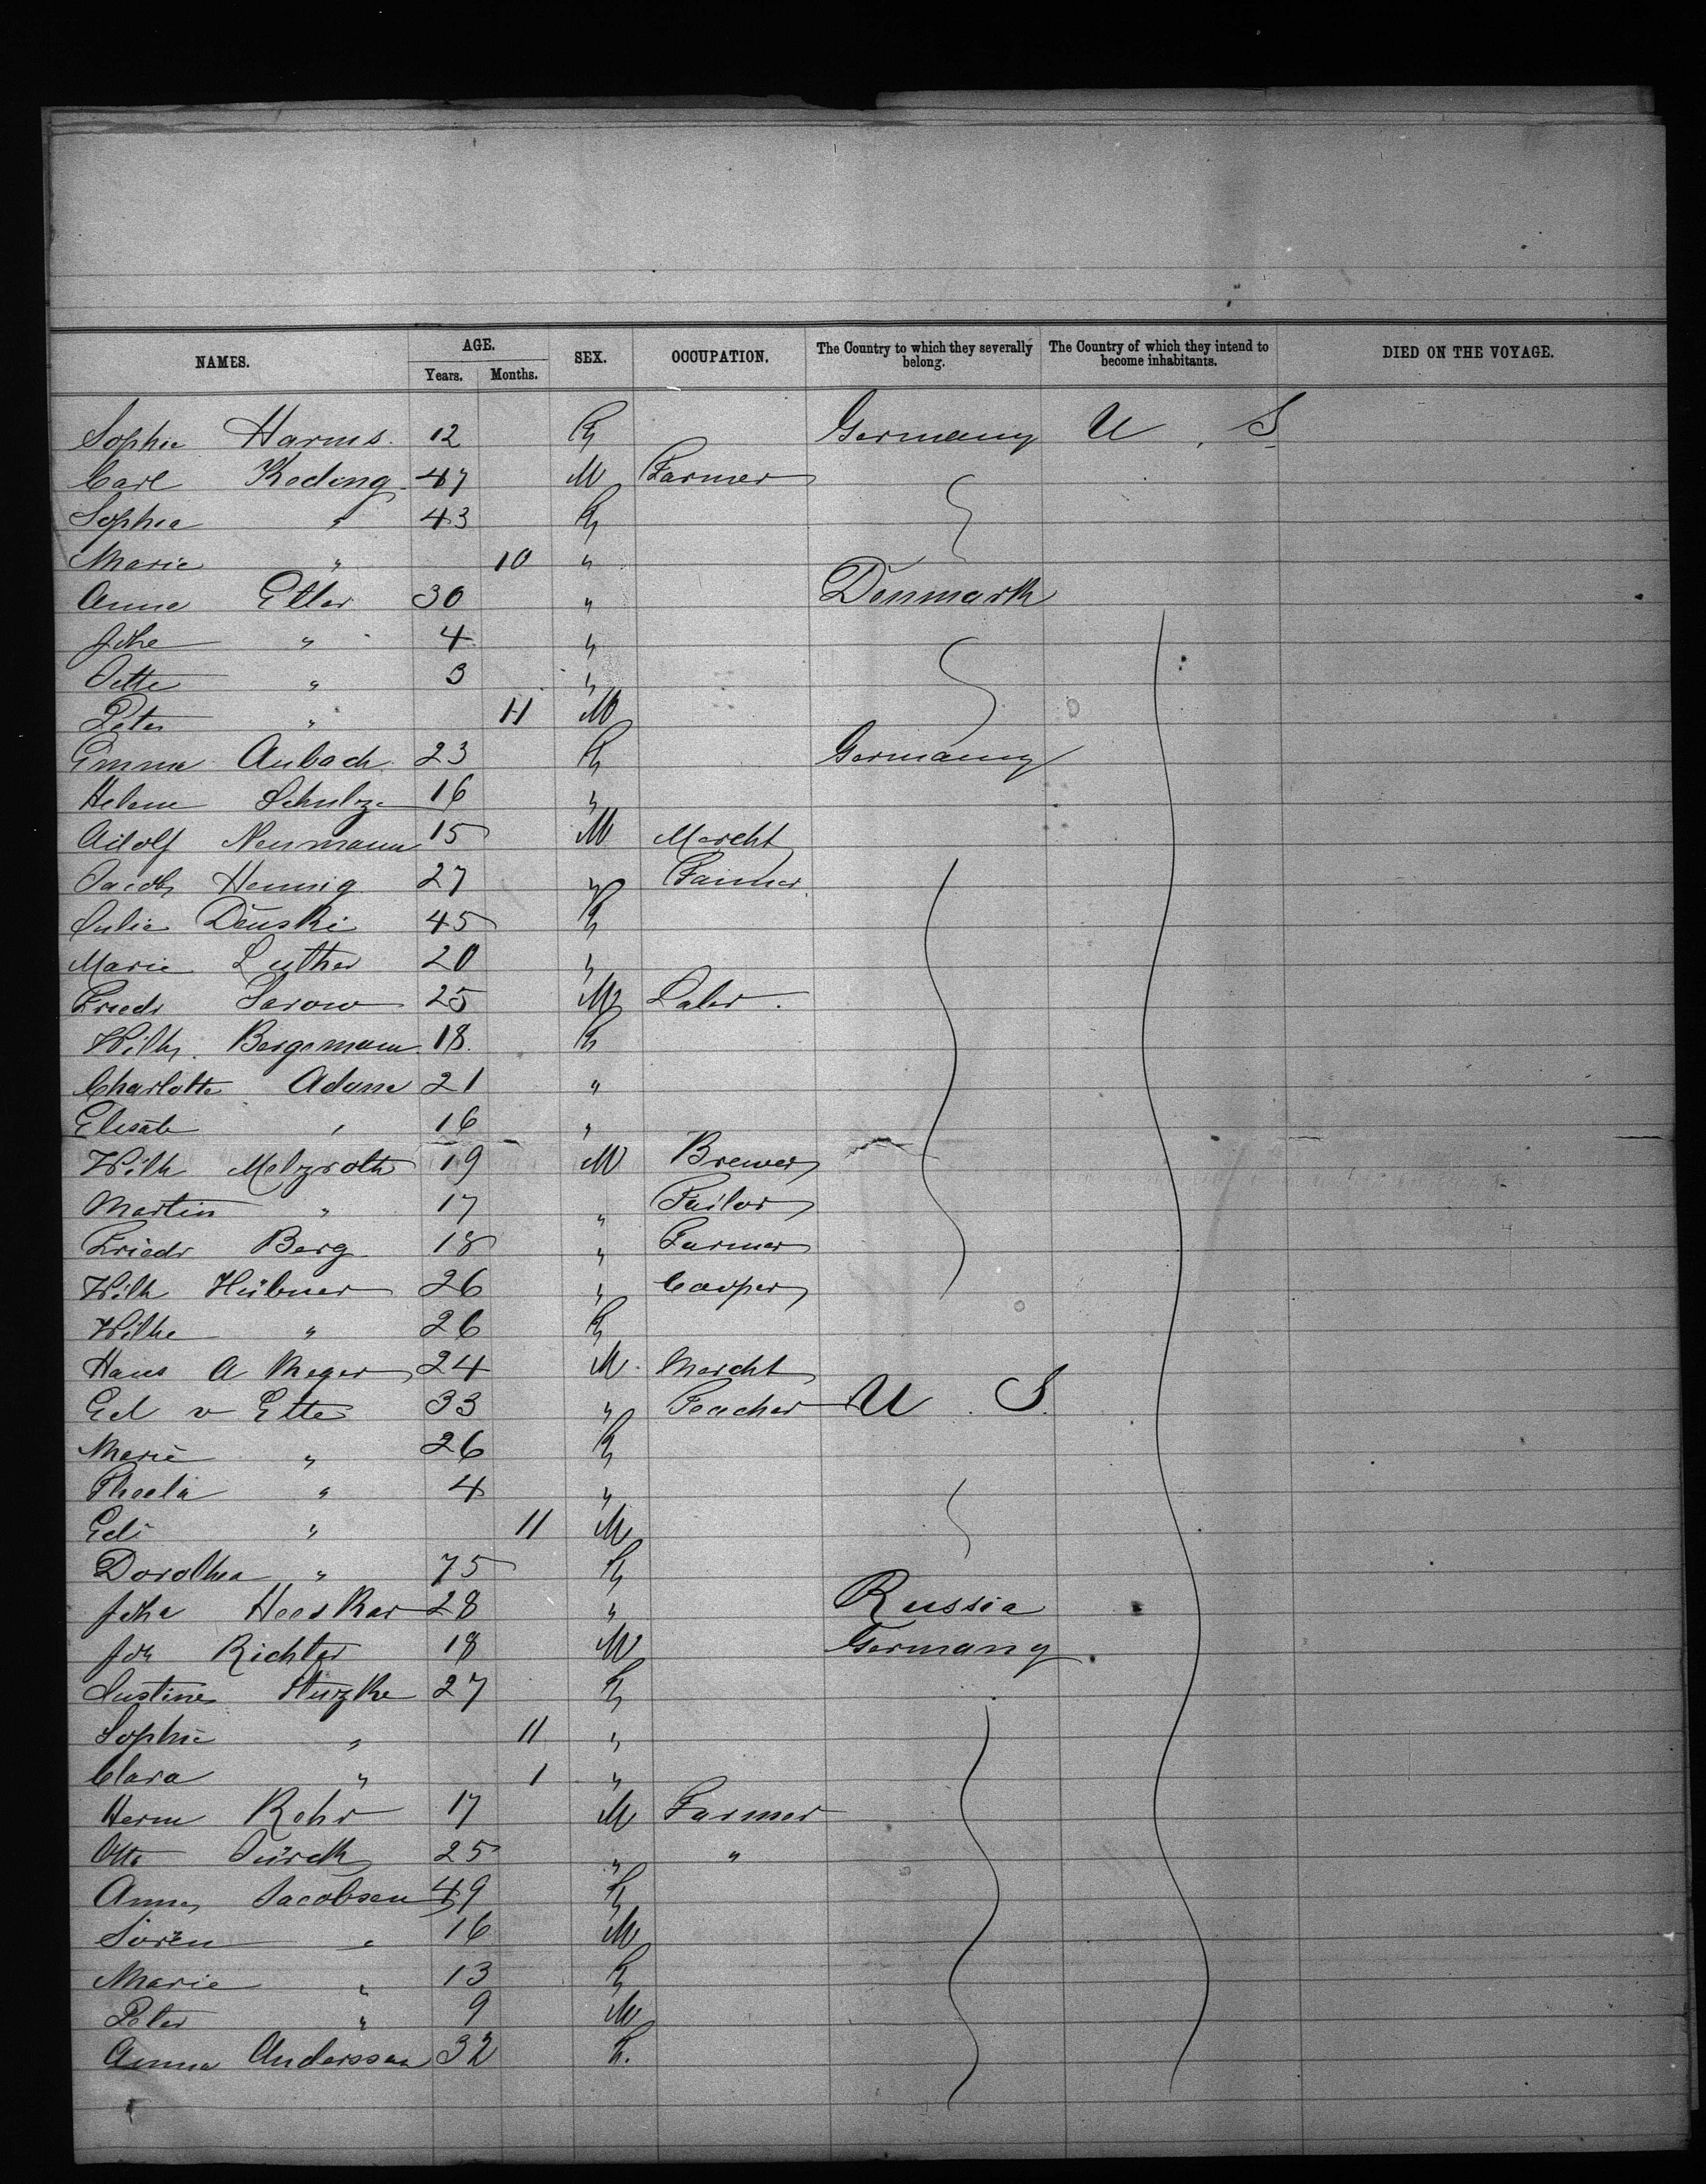 NAMES. AGE. SEX. OCCUPATION. The Country to which they severally belong. The Country of which they intend to become inhabitants. DIED ON THE VOYAGE.
Years. Months.
Sophie Harms 12 F Germany U. S
Carl Koding 47 M Farmer
Sophie " 43 F
Marie " 10 "
Anna Etler 30 " Denmark
Johe " 4 "
Jette " 3 "
Peter " 11 M
Emma Aubach 23 F Germany
Helene Schulze 16 "
Adolf Neumann 15 M Marcht
Jacob Hennig 27 " Farmer
Julie Denski 45 F
Marie Luther 20 "
Friedr Sarow 25 M Labr.
Wilh. Bergemann 18 F
Charlotte Adam 21 "
Elisab " 16 "
Wilh Melzroth 19 M Brewer
Martin " 17 " Tailor
Friedr Berg 18 " Farmer
Wilh Hübner 26 " Cooper
Wilhe " 26 F
Hans A Meyer 24 M Marcht
Ed v Ette 33 " Teacher U. S.
Marie " 26 F
Thecla " 4 "
Edi " 11 M
Dorothea " 75 F
Joha 28 " Russia
Joh Richter 18 M Germany
Justine Stüzke 27 F
Sophie " 11 "
Clara " 1 "
Herm Rohr 17 M Farmer
Otto Jürck 25 " "
Anna Jacobsen 49 F
Sören " 16 M
Marie " 13 F
Peter " 9 M
Anna Anderssen 32 F.